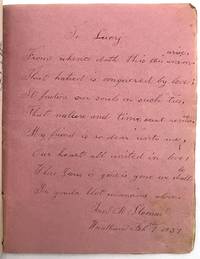 To Lucy
From whence doth this union arise
That hatred is conquered by love;
It fastens our souls in such ties,
That nature and time cant
My friend is so dear unto me,
Our heart all united in love;
Where Jesus is gone we shall be
In yonder blest mansions above.
Feb 1837